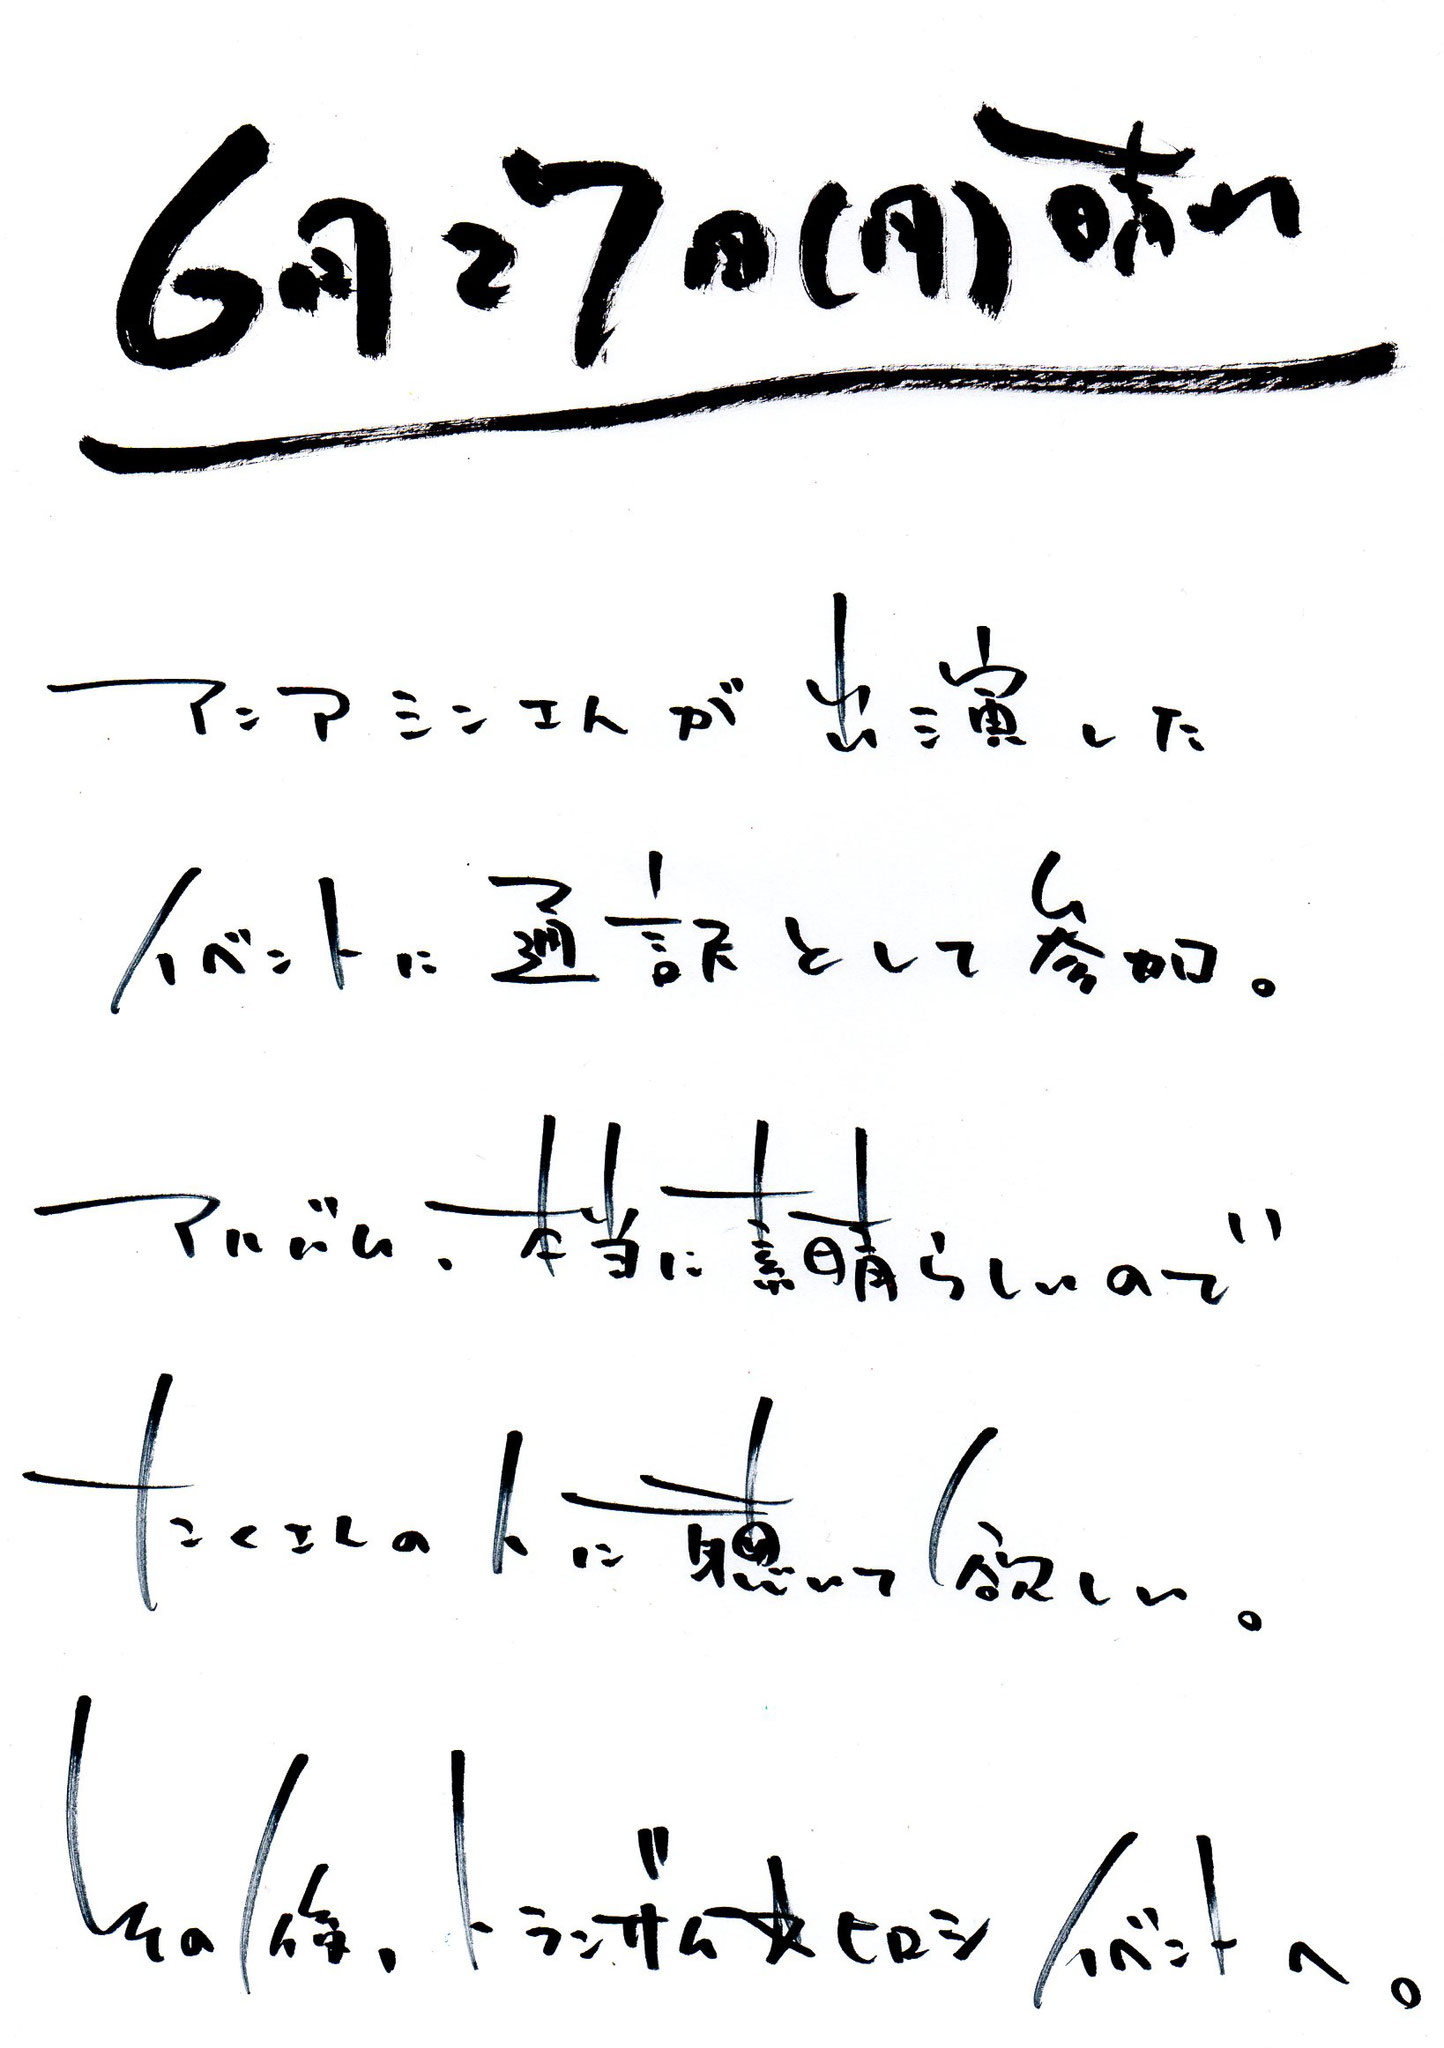 6月27日(月)晴れ
アンアミンさんが出演した
イベントに通訳として参加。
アルバム、本当に素晴らしいので
たくさんの人に聴いて欲しい。
その後、トランザム★ヒロシイベントへ。